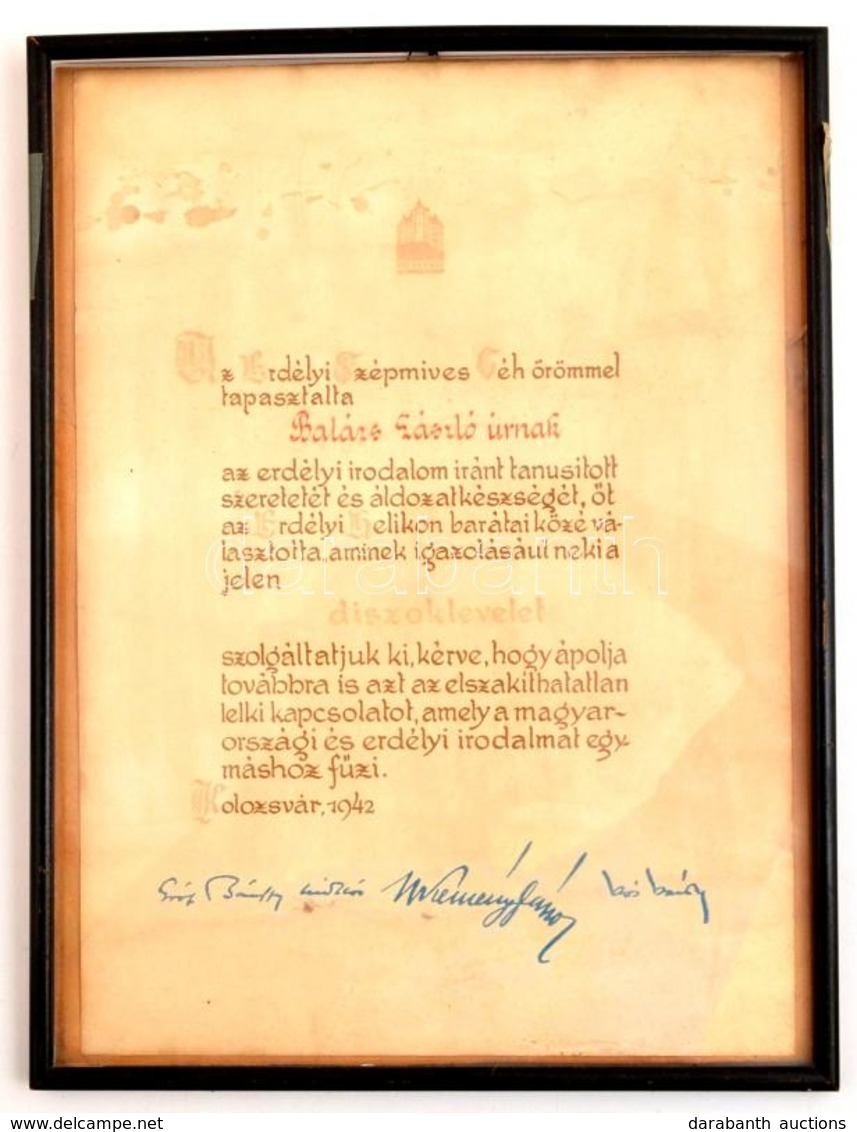 Az Erdélyi Szépmives Céh örömmel
tapasztalta
Balázs László úrnak
az erdélyi irodalom iránt tanusitott
szeretetét és áldozatkészségét, őt
az Erdélyi Helikon barátai közé vá-
lasztotta, aminek igazolásául neki a
jelen
diszoklevelet
szolgáltatjuk ki, kérve, hogy ápolja
továbbra is azt az elszakithatatlan
lelki kapcsolatot, amely a magyar-
országi és erdélyi irodalmat egy-
máshoz fűzi.
Kolozsvár, 1942
Gróf Bánffy Miklós Kemény János Kós Károly
darabanth
delcampe.net
darabanth auctions